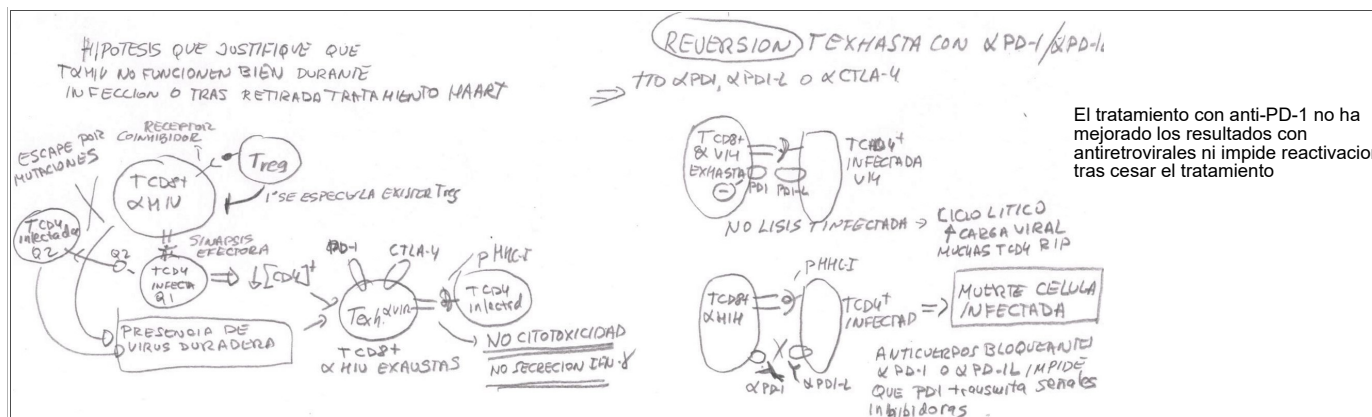 HIPOTESIS QUE JUSTIFIQUE QUE
TαHIV NO FUNCIONEN BIEN DURANTE
INFECCION O TRAS RETIRADA TRATAMIENTO HAART
ESCAPE POR
MUTACIONES
RECEPTOR
COINHIBIDOR
Treg
1º SE ESPECULA EXISTER Treg
TCD8+
αHIV
TCD4
infectada
Q2
Q2
SINAPSIS
EFECTORA
TCD4
INFECTA
Q1
↓[CD4]+
PRESENCIA DE
VIRUS DURADERA
PD-1
CTLA-4
pMHC-I
Texh.
TCD4
infected
TCD8+
αHIV EXAUSTAS
NO CITOTOXICIDAD
NO SECRECION IFN-γ
REVERSION TEXHASTA CON αPD-1/αPD-1L
⇒ TTO αPD1, αPD1-L O αCTLA-4
TCD8+
α VIH
EXHASTA
PD1
PD1-L
TCD4+
INFECTADA
VIH
NO LISIS TINFECTADA →
CICLO LITICO
↑ CARGA VIRAL
MUCHAS TCD4 RIP
pMHC-I
TCD8+
αHIH
TCD4+
INFECTAD
⇒
MUERTE CELULA
INFECTADA
αPD-1
αPD1-L
ANTICUERPOS BLOQUEANTE
αPD-1 O αPD-1L IMPIDE
QUE PD1 transmita señales
inhibidoras
El tratamiento con anti-PD-1 no ha
mejorado los resultados con
antiretrovirales ni impide reactivacion
tras cesar el tratamiento